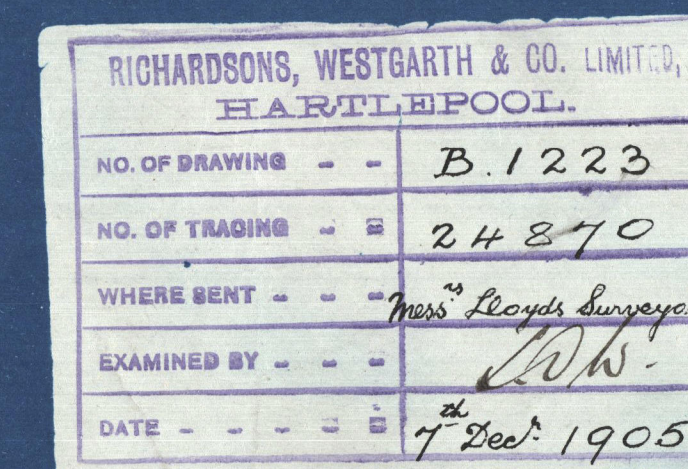 RICHARDSONS, WESTGARTH & CO. LIMITED,
HARTLEPOOL.
NO. OF DRAWING - - B.1223
NO. OF TRACING - - 24870
WHERE SENT - - - Mess.rs Lloyds Surveyo
EXAMINED BY - - -
DATE - - - - - 7th Decr. 1905